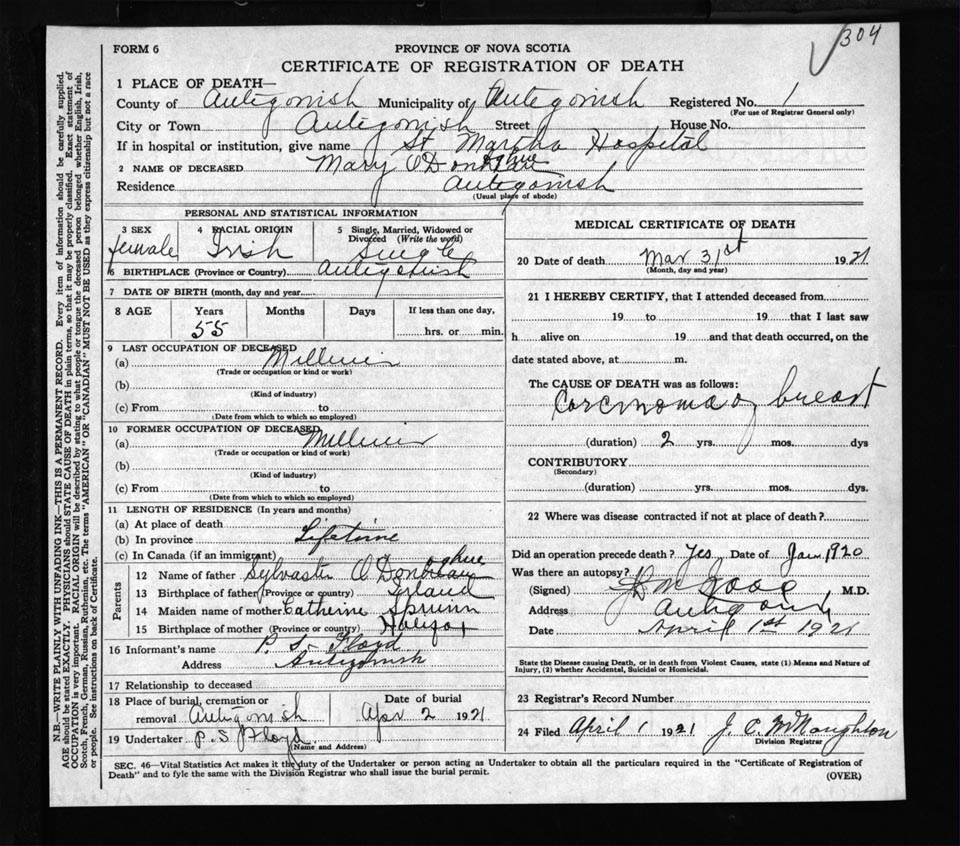 304
FORM 6
PROVINCE OF NOVA SCOTIA
CERTIFICATE OF REGISTRATION OF DEATH
1 PLACE OF DEATH—
County of Antigonish Municipality of Antigonish Registered No. 1
(For use of Registrar General only)
City or Town Antigonish Street House No.
If in hospital or institution, give name St. Martha Hospital
2 NAME OF DECEASED Mary O'Donoghue
Residence Antigonish
(Usual place of abode)
PERSONAL AND STATISTICAL INFORMATION
3 SEX 4 RACIAL ORIGIN 5 Single, Married, Widowed or
Divorced (Write the word)
female Irish Single
6 BIRTHPLACE (Province or Country) Antigonish
7 DATE OF BIRTH (month, day and year)
8 AGE Years Months Days If less than one day,
55 hrs. or min.
9 LAST OCCUPATION OF DECEASED
(a) Milliner
(Trade or occupation or kind of work)
(b)
(Kind of industry)
(c) From to
(Date from which to which so employed)
10 FORMER OCCUPATION OF DECEASED
(a) Milliner
(Trade or occupation or kind of work)
(b)
(Kind of industry)
(c) From to
(Date from which to which so employed)
11 LENGTH OF RESIDENCE (In years and months)
(a) At place of death
(b) In province Lifetime
(c) In Canada (if an immigrant)
Parents
12 Name of father Sylvester O'Donoghue
13 Birthplace of father (Province or country) Ireland
14 Maiden name of mother Catherine
15 Birthplace of mother (Province or country) Halifax
16 Informant's name P. S. Floyd
Address Antigonish
17 Relationship to deceased
18 Place of burial, cremation or Date of burial
removal Antigonish Apr 2 1921
19 Undertaker P. S. Floyd
(Name and Address)
MEDICAL CERTIFICATE OF DEATH
20 Date of death Mar 31st 1921
(Month, day and year)
21 I HEREBY CERTIFY, that I attended deceased from
19 to 19 that I last saw
h alive on 19 and that death occurred, on the
date stated above, at m.
The CAUSE OF DEATH was as follows:
Carcinoma of breast
(duration) 2 yrs. mos. dys
CONTRIBUTORY
(Secondary)
(duration) yrs. mos. dys.
22 Where was disease contracted if not at place of death?
Did an operation precede death? Yes Date of Jan. 1920
Was there an autopsy?
(Signed) M.D.
Address Antigonish
Date April 1st 1921
State the Disease causing Death, or in death from Violent Causes, state (1) Means and Nature of
Injury, (2) whether Accidental, Suicidal or Homicidal.
23 Registrar's Record Number
24 Filed April 1 1921 J. C. McNaughton
Division Registrar
SEC. 46—Vital Statistics Act makes it the duty of the Undertaker or person acting as Undertaker to obtain all the particulars required in the "Certificate of Registration of
Death" and to fyle the same with the Division Registrar who shall issue the burial permit.
(OVER)
N.B.—WRITE PLAINLY WITH UNFADING INK—THIS IS A PERMANENT RECORD. Every item of information should be carefully supplied.
AGE should be stated EXACTLY. PHYSICIANS should STATE CAUSE OF DEATH in plain terms, so that it may be properly classified. Exact statement of
OCCUPATION is very important. RACIAL ORIGIN will be described by stating to what people or tongue the deceased person belonged whether English, Irish,
Scotch, French, German, Russian, Ruthenian, etc. The terms "AMERICAN" OR "CANADIAN" MUST NOT BE USED as they express citizenship but not a race
or people. See instructions on back of Certificate.